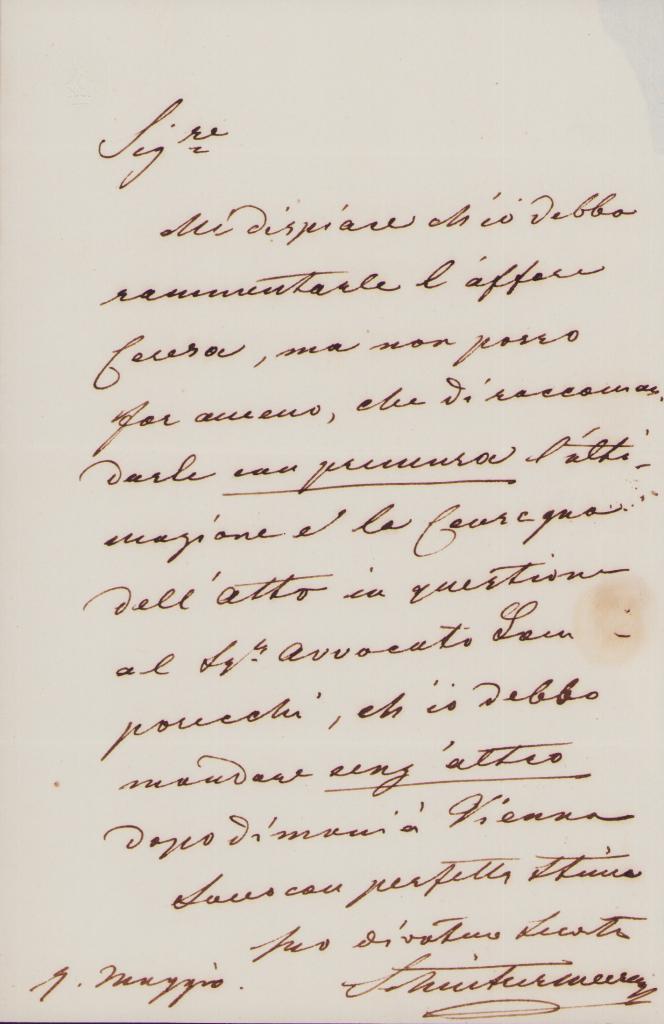 Sig.re
Mi dispiace ch'io debba
rammentarle l'affare
Ceresa, ma non posso
far ameno, che di raccoman-
darle con premura l'ulti-
mazione e la Consegna
dell'atto in questione
al Sg.r Avvocato Lam-
porecchi, ch'io debbo
mandare senz'altro
dopo dimani à Vienna
Sono con perfetta Stima
suo
Maggio.